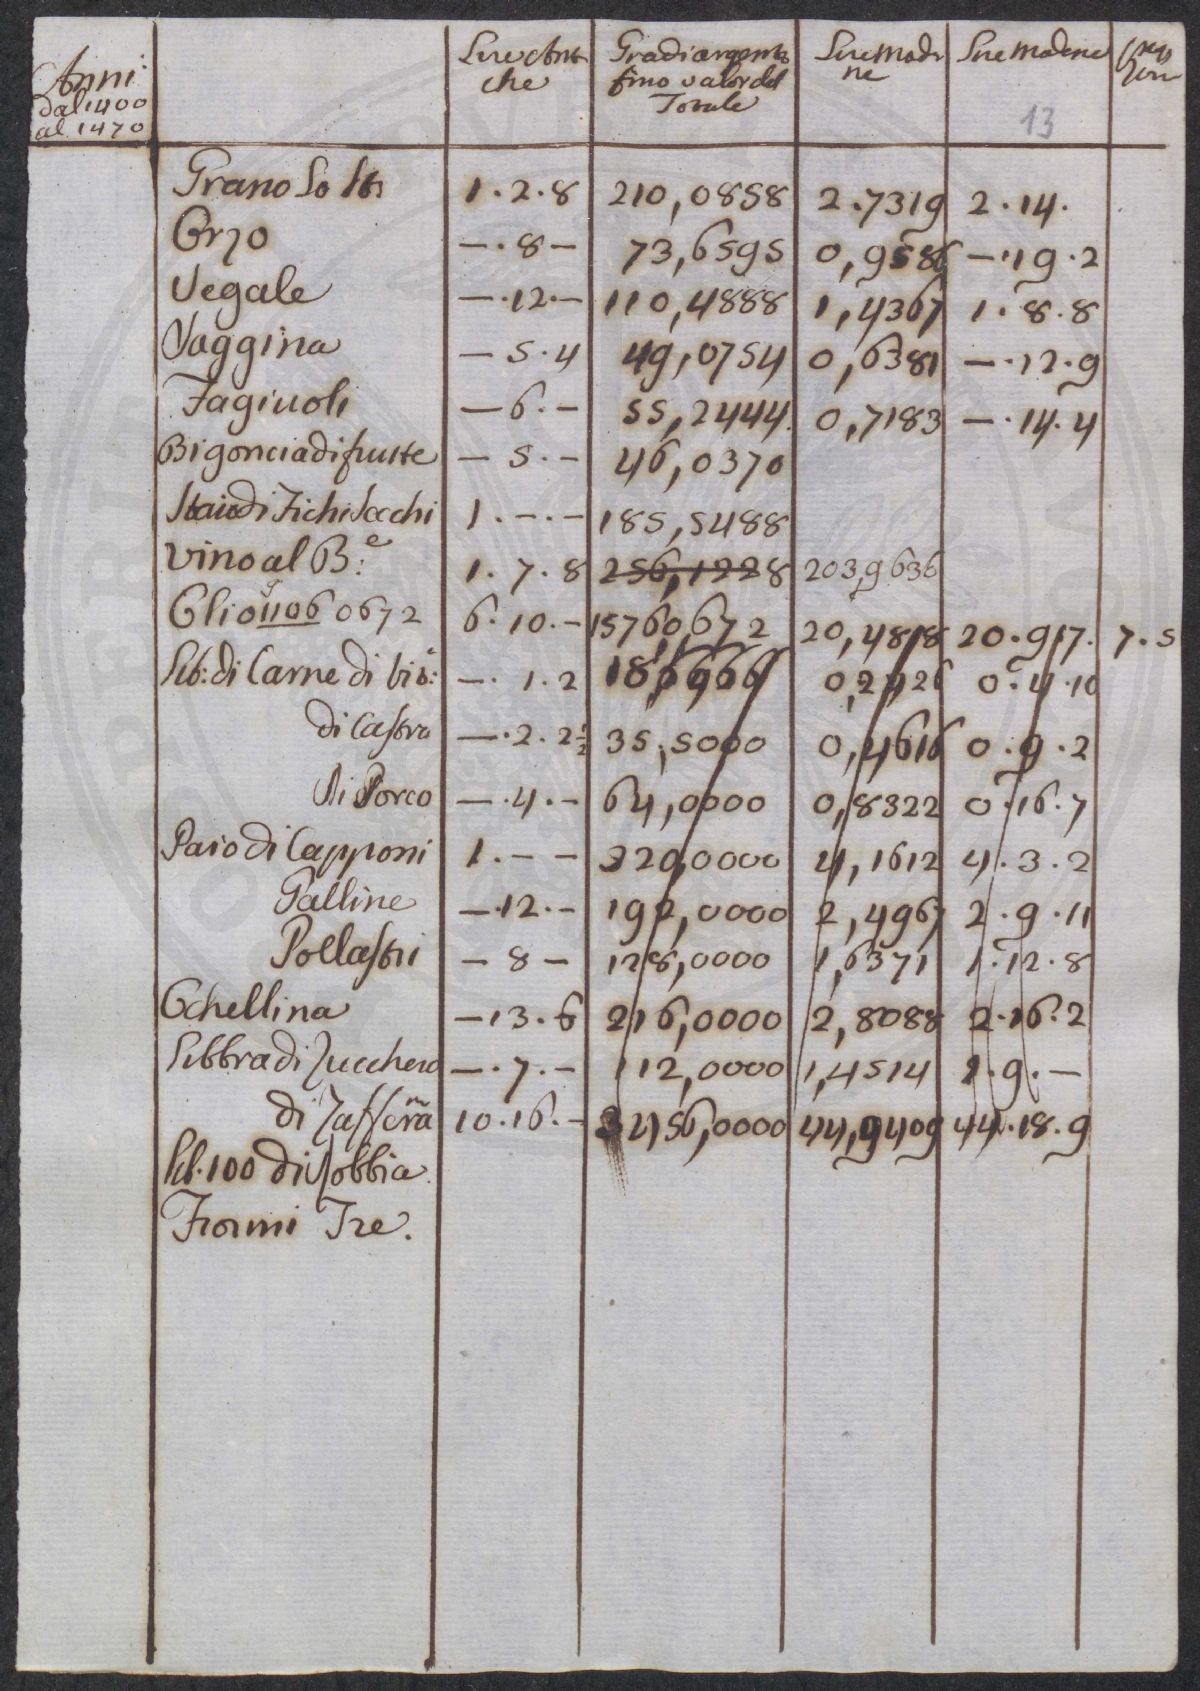 Anni
dal 1400
al 1470
Lire Anti
che
Gra di argento
fino valor del
Totale
Lire Moder
ne
Lire Moderne
13
Grano Lo Sto 1.2.8 210,0858 2.7319 2.14.
Orzo —.8— 73,6595 0,9586 —.19.2
Segale —.12.— 110,4888 1,4367 1.8.8
Saggina — 5.4 49,0754 0,6381 —.12.9
Fagiuoli — 6.— 55,2444. 0,7183 —.14.4
Bigoncia di frutte — 5.— 46,0370
Staio di Fichi Secchi 1.—.— 185,5488
Vino al B.e 1.7.8 256,1228 203,9636
Olio 1106 0672 6.10.— 15760,672 20,4818 20.917. 7.5
Lib: di Carne di bi —.1.2 0.4.10
di Castra —.2.2½ 35,5000 0,4616 0.9.2
di Porco —.4.— 64,0000 0,8322 0.16.7
Paio di Capponi 1.—— 320,0000 4,1612 4.3.2
Galline —.12.— 192,0000 2,4967 2.9.11
Pollastri — 8 — 128,0000 1,6371 1.12.8
Ochellina —13.6 216,0000 2,8088 2.16.2
Libbra di Zucchero —.7.— 112,0000 1,4514 1.9.—
di Zafferã 10.16.— 3456,0000 44,9409 44.18.9
Lib. 100 di Robbia
Fiorini Tre.